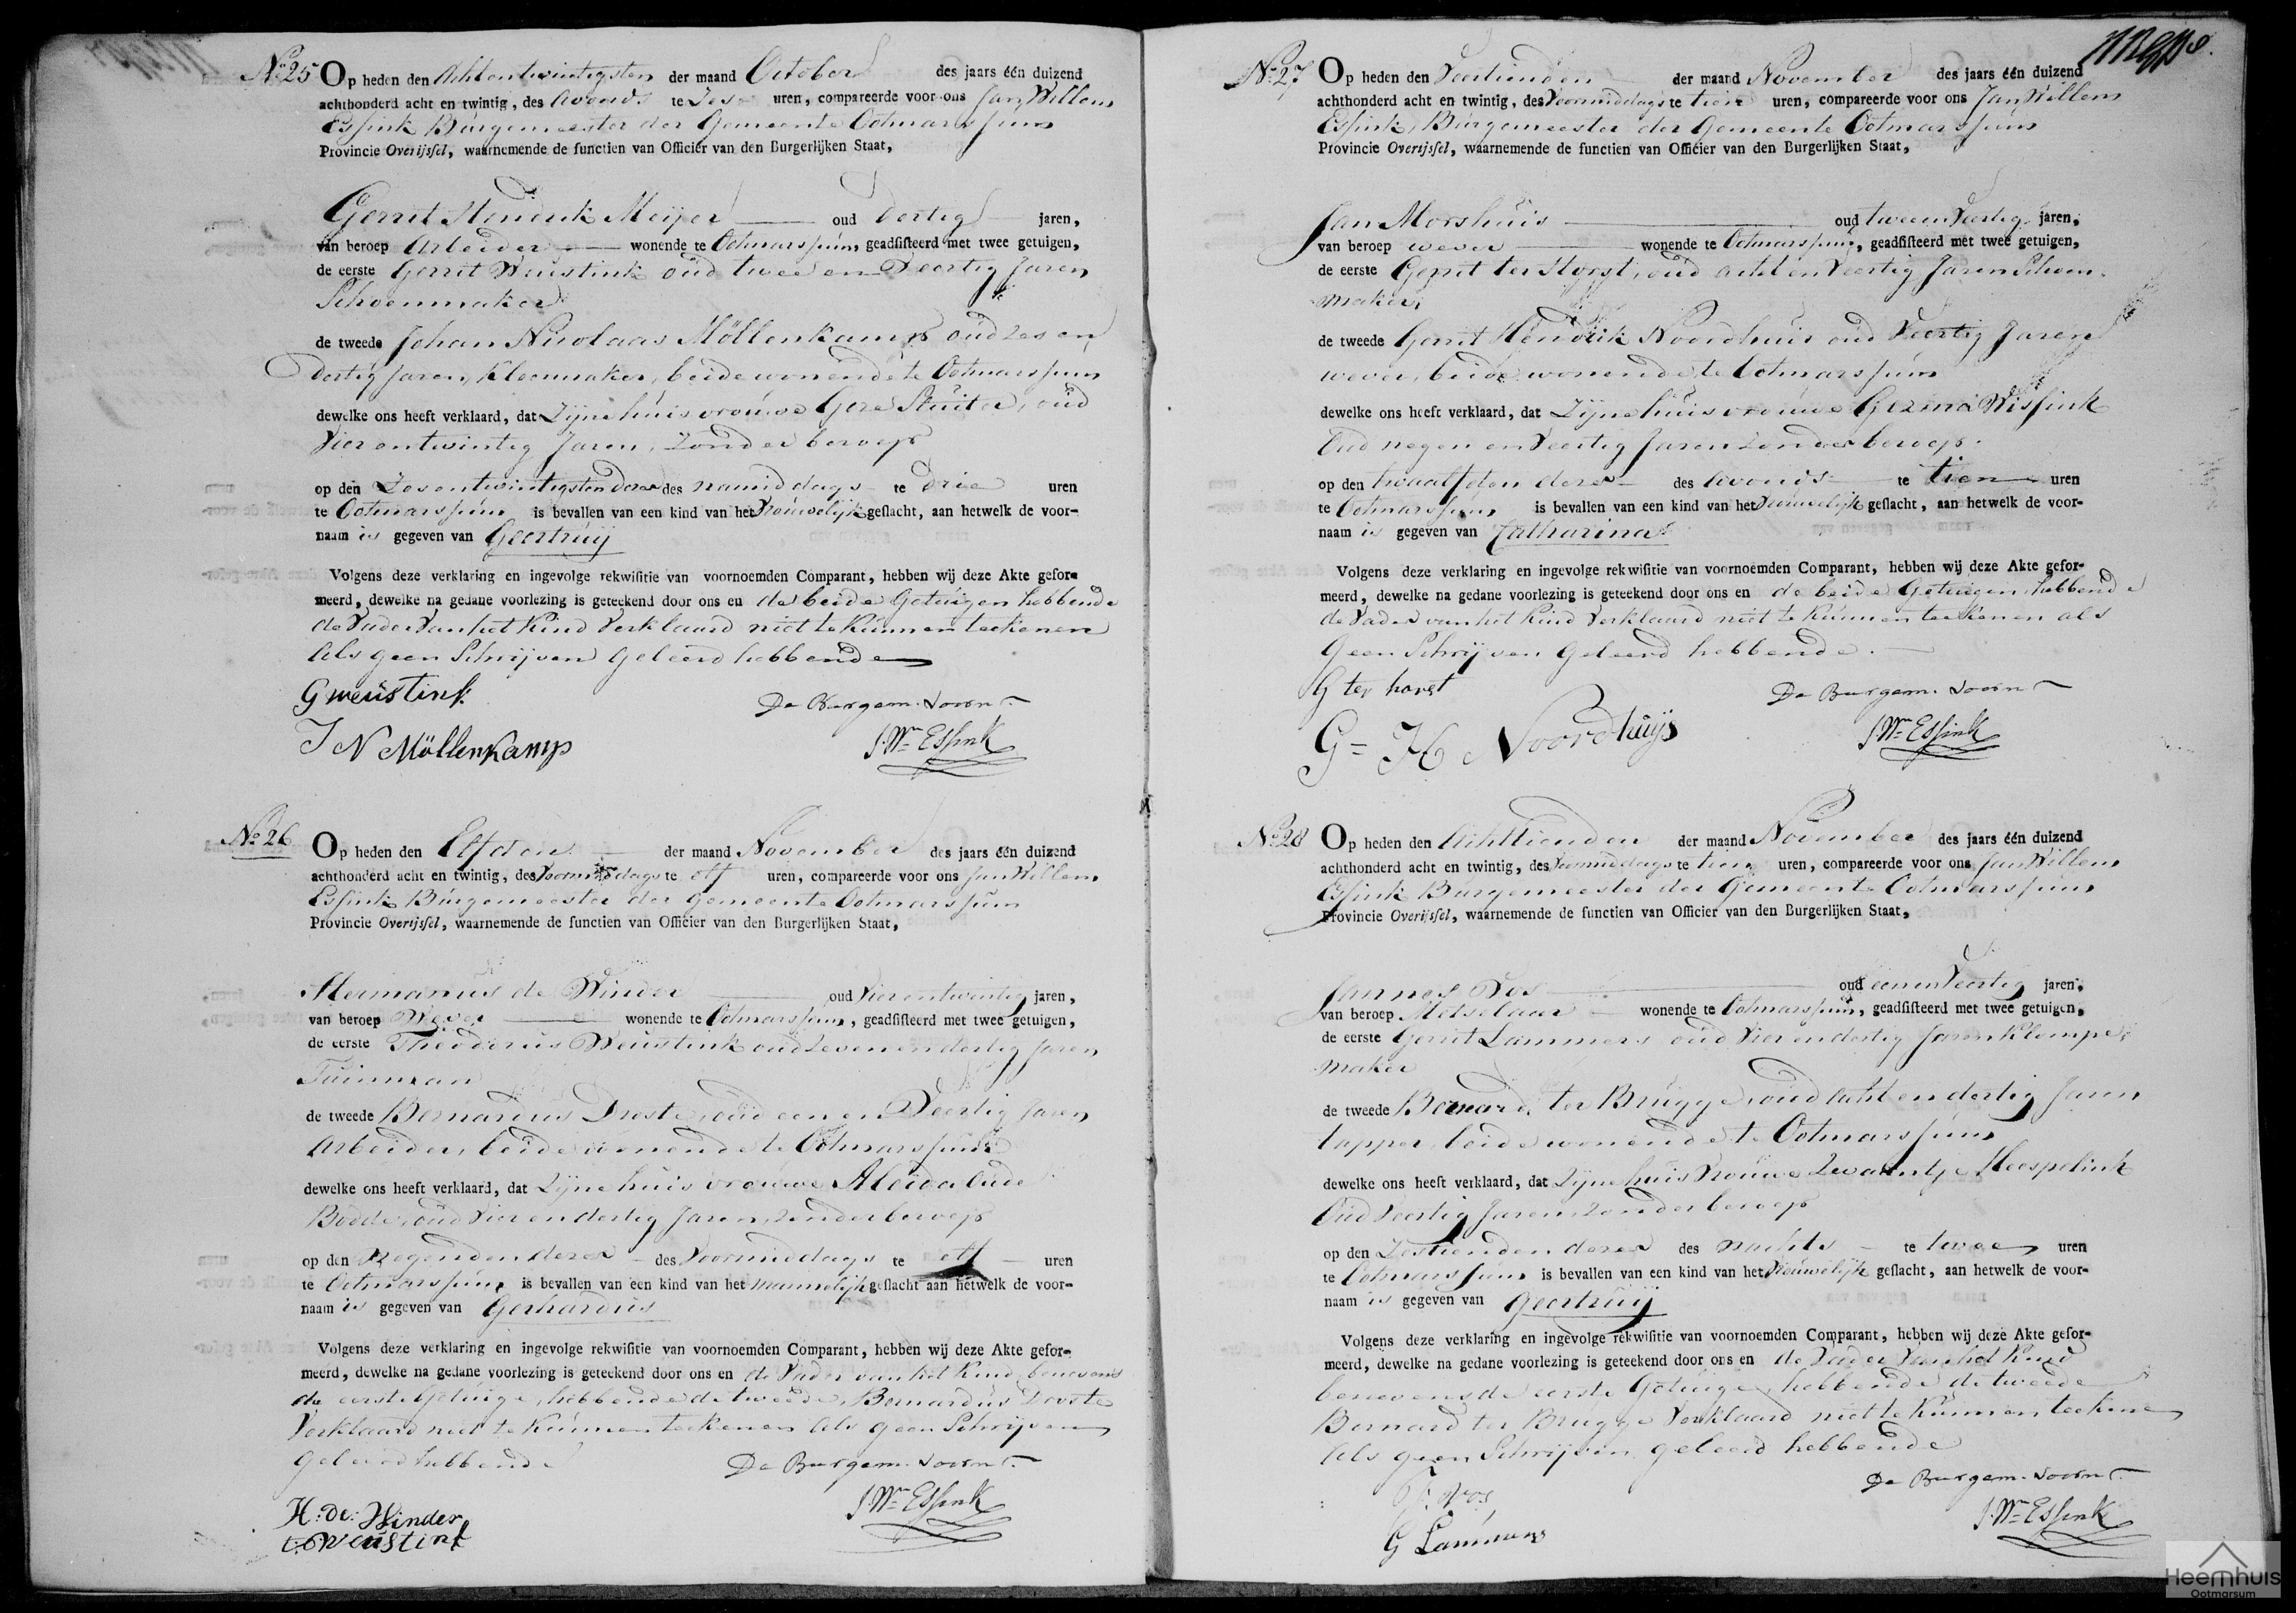 No 25 Op heden den Achtentwintigsten der maand October des jaars één duizend
achthonderd acht en twintig, des Avonds te Zes uren, compareerde voor ons Jan Willem
Essink Burgemeester der Gemeente Ootmarssum
Provincie Overijssel, waarnemende de functien van Officier van den Burgerlijken Staat,
Gerrit Hendrik Meijer oud dertig jaren,
van beroep Arbeider wonende te Ootmarssum, geadsisteerd met twee getuigen,
de eerste Gerrit Weustink oud twee en Veertig Jaren
Schoenmaker
de tweede Johan Nicolaas Möllenkamp oud zes en
Dertig Jaren, Kleermaker, beide wonende te Ootmarssum
dewelke ons heeft verklaard, dat Zijne huisvrouwe Geze Stuiter, oud
Vierentwintig Jaren, Zonder beroep
op den Zesentwintigsten dezer des namiddags te drie uren
te Ootmarssum is bevallen van een kind van het Vrouwelijk geslacht, aan hetwelk de voor-
naam is gegeven van Geertruij
Volgens deze verklaring en ingevolge rekwisitie van voornoemden Comparant, hebben wij deze Akte gefor-
meerd, dewelke na gedane voorlezing is geteekend door ons en de beide Getuigen hebbende
de Vader van het Kind Verklaard niet te Kunnen teekenen
Als geen Schrijven Geleerd hebbende
G weustink
De Burgem. voorn.
J N Möllenkamp
J. Wm Essink
No 26 Op heden den Elfden der maand November des jaars één duizend
achthonderd acht en twintig, des Voormiddags te elf uren, compareerde voor ons Jan Willem
Essink Burgemeester der Gemeente Ootmarssum
Provincie Overijssel, waarnemende de functien van Officier van den Burgerlijken Staat,
Hermanus de Winder oud Vierentwintig jaren,
van beroep Wever wonende te Ootmarssum, geadsisteerd met twee getuigen,
de eerste Theodorus Weustink oud Zevenendertig Jaren
Tuinman
de tweede Bernardus Droste, oud een en Veertig Jaren
Arbeider, beide wonende te Ootmarssum
dewelke ons heeft verklaard, dat Zijne huisvrouwe Aleida Oude
Bodde, oud Vier en dertig Jaren, zonder beroep
op den Negenden dezer des Voormiddags te elf uren
te Ootmarssum is bevallen van een kind van het mannelijk geslacht aan hetwelk de voor-
naam is gegeven van Gerhardus
Volgens deze verklaring en ingevolge rekwisitie van voornoemden Comparant, hebben wij deze Akte gefor-
meerd, dewelke na gedane voorlezing is geteekend door ons en de Vader van het Kind, benevens
de eerste Getuige, hebbende de tweede, Bernardus Droste
Verklaard niet te Kunnen teekenen Als geen Schrijven
Geleerd hebbende
De Burgem. voorn.
H: de: Winder
J. Wm Essink
weustink
No 27 Op heden den Veertienden der maand November des jaars één duizend
achthonderd acht en twintig, des Voormiddags te tien uren, compareerde voor ons Jan Willem
Essink, Burgemeester der Gemeente Ootmarssum
Provincie Overijssel, waarnemende de functien van Officier van den Burgerlijken Staat,
Jan Morshuis oud tweeenVeertig jaren,
van beroep wever wonende te Ootmarssum, geadsisteerd met twee getuigen,
de eerste Gerrit ter Horst, oud acht en Veertig Jaren Schoen-
maker,
de tweede Gerrit Hendrik Noordhuis oud Veertig Jaren
wever, beide wonende te Ootmarssum
dewelke ons heeft verklaard, dat Zijne huisvrouwe Gezina Wissink
Oud negen en Veertig Jaren zonder beroep.
op den twaalfden dezer des Avonds te tien uren
te Ootmarssum is bevallen van een kind van het Vrouwelijk geslacht, aan hetwelk de voor-
naam is gegeven van Catharina
Volgens deze verklaring en ingevolge rekwisitie van voornoemden Comparant, hebben wij deze Akte gefor-
meerd, dewelke na gedane voorlezing is geteekend door ons en de beide Getuigen, hebbende
de Vader van het Kind Verklaard niet te Kunnen teekenen als
Geen Schrijven Geleerd hebbende.
G ter horst
De Burgem. voorn.
G= H Noordhuijs
J. Wm Essink
No 28 Op heden den Achttienden der maand November des jaars één duizend
achthonderd acht en twintig, des Voormiddags te tien uren, compareerde voor ons Jan Willem
Essink Burgemeester der Gemeente Ootmarssum
Provincie Overijssel, waarnemende de functien van Officier van den Burgerlijken Staat,
Jannes Vos oud eenenVeertig jaren,
van beroep Metselaar wonende te Ootmarssum, geadsisteerd met twee getuigen,
de eerste Gerrit Lammers oud Vier en dertig Jaren Klompe-
maker
de tweede Bernard ter Brugge, oud Acht en dertig Jaren
tapper, beide wonende te Ootmarssum
dewelke ons heeft verklaard, dat Zijne huisVrouwe Zwaantje Heespelink
Oud Veertig Jaren, zonder beroep
op den Zestienden dezer des nachts te twee uren
te Ootmarssum is bevallen van een kind van het Vrouwelijk geslacht, aan hetwelk de voor-
naam is gegeven van Geertruij
Volgens deze verklaring en ingevolge rekwisitie van voornoemden Comparant, hebben wij deze Akte gefor-
meerd, dewelke na gedane voorlezing is geteekend door ons en de Vader van het Kind
benevens de eerste Getuige, hebbende de tweede
Bernard ter Brugge Verklaard niet te Kunnen teekenen
Als geen Schrijven geleerd hebbende
De Burgem. voorn.
J. Vos
J. Wm Essink
G Lammers
Heemhuis
Ootmarsum